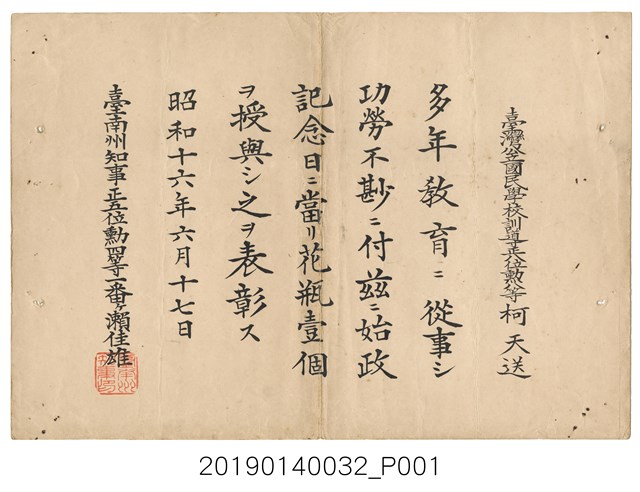 臺灣公立國民學校訓導正八位勲八等 柯天送
多年教育ニ從事シ
功勞不尠ニ付玆ニ始政
記念日ニ當リ花瓶壹個
ヲ授與シ之ヲ表彰ス
昭和十六年六月十七日
臺南州知事正五位勲四等一番ヶ瀨佳雄
20190140032_P001